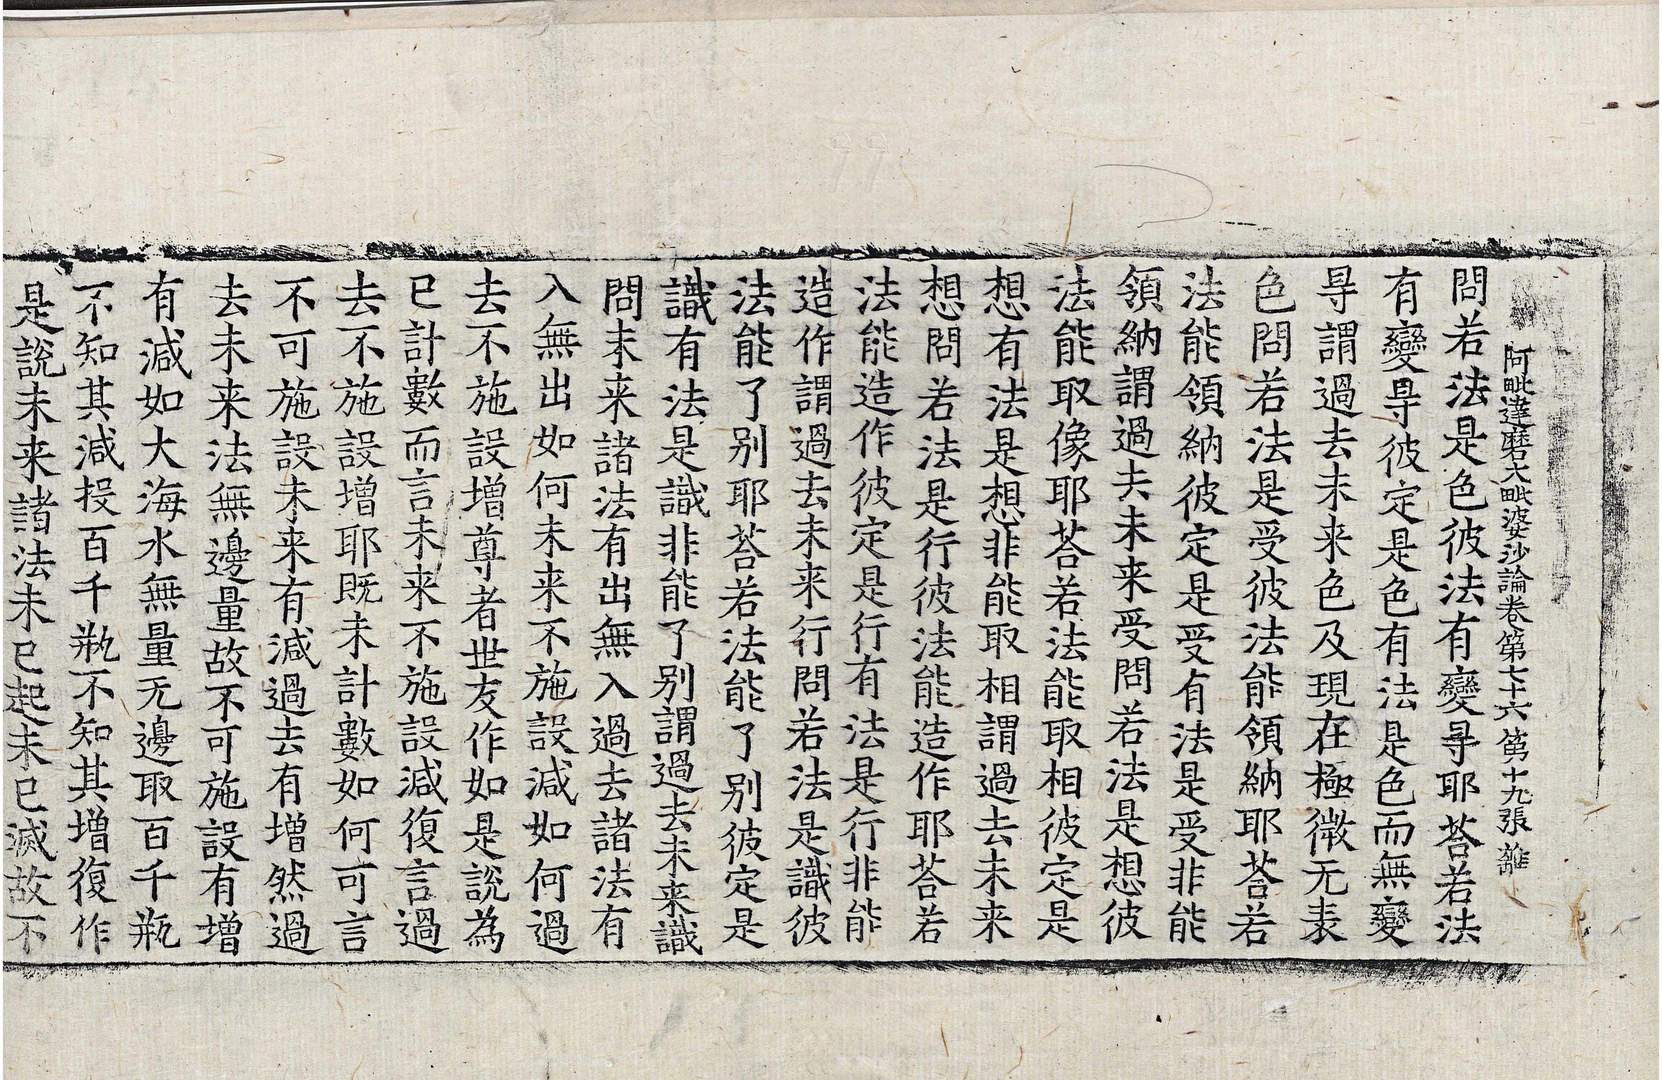 阿毗達磨大毗婆沙論卷第七十六 第十九張 離
問若法是色彼法有變㝵耶荅若法
有變㝵彼定是色有法是色而無變
㝵謂過去未来色及現在極微无表
色問若法是受彼法能領納耶荅若
法能領納彼定是受有法是受非能
領納謂過去未来受問若法是想彼
法能取像耶荅若法能取相彼定是
想有法是想非能取相謂過去未来
想問若法是行彼法能造作耶荅若
法能造作彼定是行有法是行非能
造作謂過去未来行問若法是識彼
法能了别耶荅若法能了別彼定是
識有法是識非能了别謂過去未来識
問未来諸法有出無入過去諸法有
入無出如何未来不施設減如何過
去不施設增尊者世友作如是說為
已計數而言未来不施設減復言過
去不施設增耶既未計數如何可言
不可施設未来有減過去有增然過
去未来法無邊量故不可施設有增
有減如大海水無量无邊取百千瓶
不知其減投百千瓶不知其增復作
是說未来諸法未已起未已滅故不